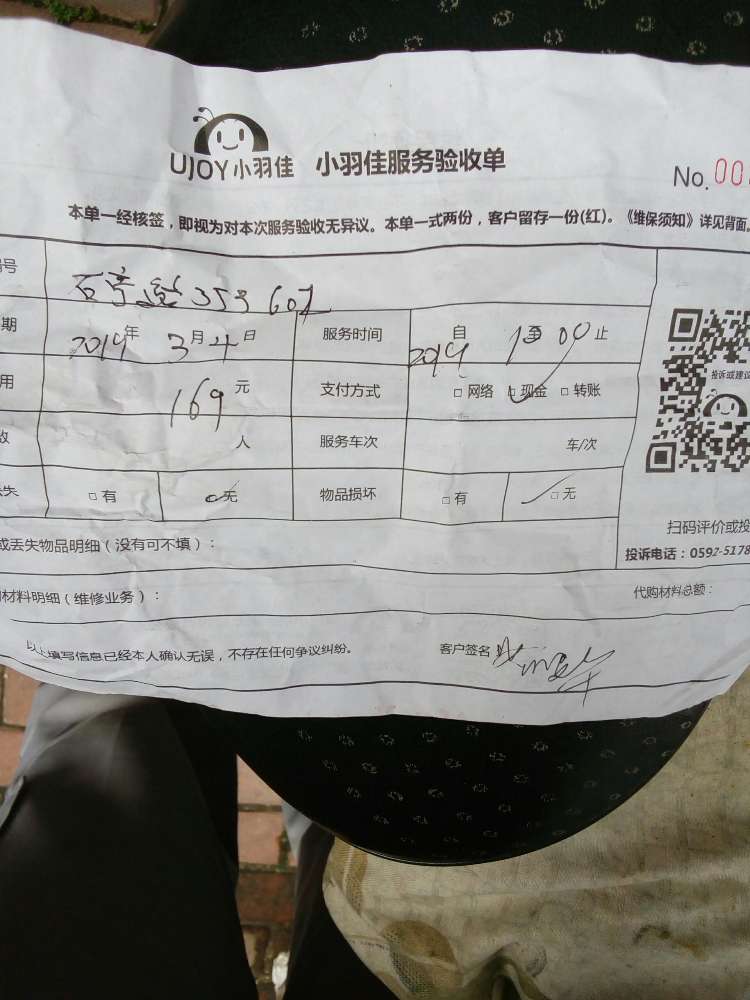 UJOY小羽佳 小羽佳服务验收单
No.00
本单一经核签，即视为对本次服务验收无异议。本单一式两份，客户留存一份(红)。《维保须知》详见背面。
号 353 602
期 2019年 3月4日 服务时间 自 2019 至 00 止
用 169元 支付方式 □网络 □现金 □转账
投诉或建议
数 人 服务车次 车/次
失 □有 □无 物品损坏 □有 □无
扫码评价或投
或丢失物品明细（没有可不填）：
投诉电话：0592-5178
材料明细（维修业务）：
代购材料总额：
以上填写信息已经本人确认无误，不存在任何争议纠纷。 客户签名